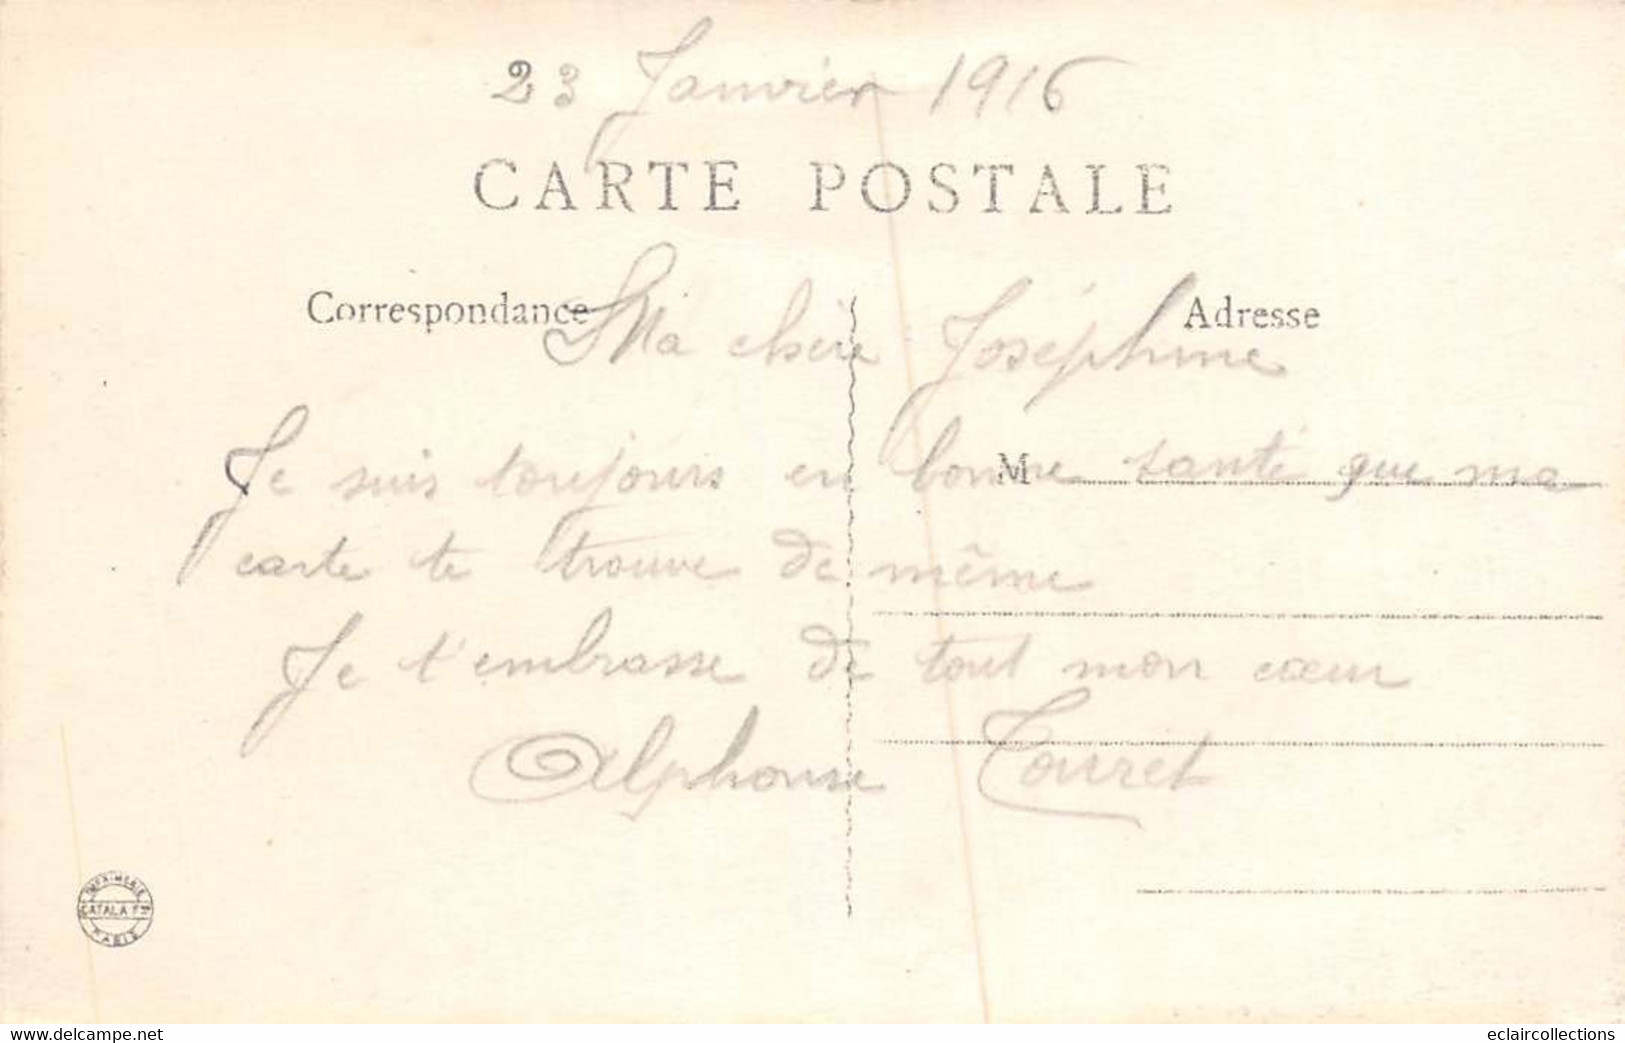 23 Janvier 1916
CARTE POSTALE
Correspondance
Adresse
Ma chère Joséphine
M
Je suis toujours en bonne santé que ma
carte te trouve de même
Je t'embrasse de tout mon cœur
Alphonse Touret
IMPRIMERIE
CATALA FRES
PARIS
www.delcampe.net
eclaircollections